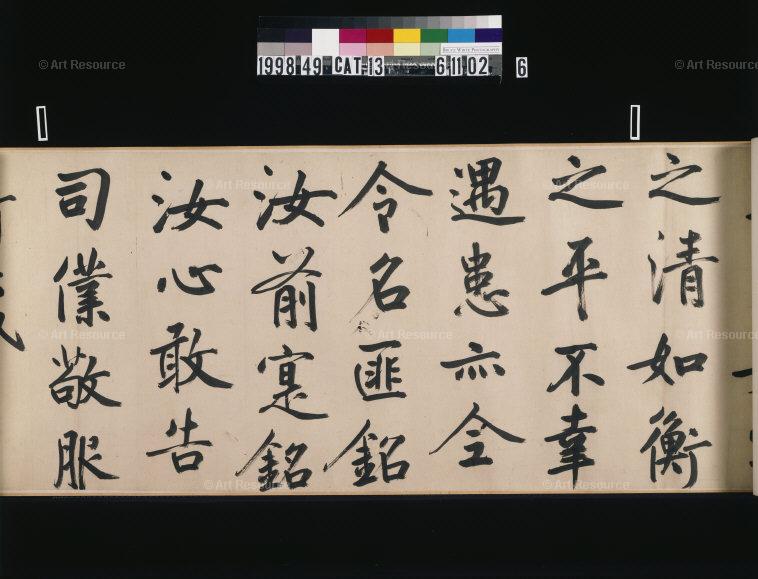 BRUCE WHITE PHOTOGRAPHY
1998 49 CAT 13 6 11 02 6
之清如衡
之平不幸
遇患亦全
令名匪銘
汝前寔銘
汝心敢告
司僕敬服
© Art Resource
© Art Resource
© Art Resource
© Art Resource
© Art Resource
© Art Resource
© Art Resource
© Art Resource
© Art Resource